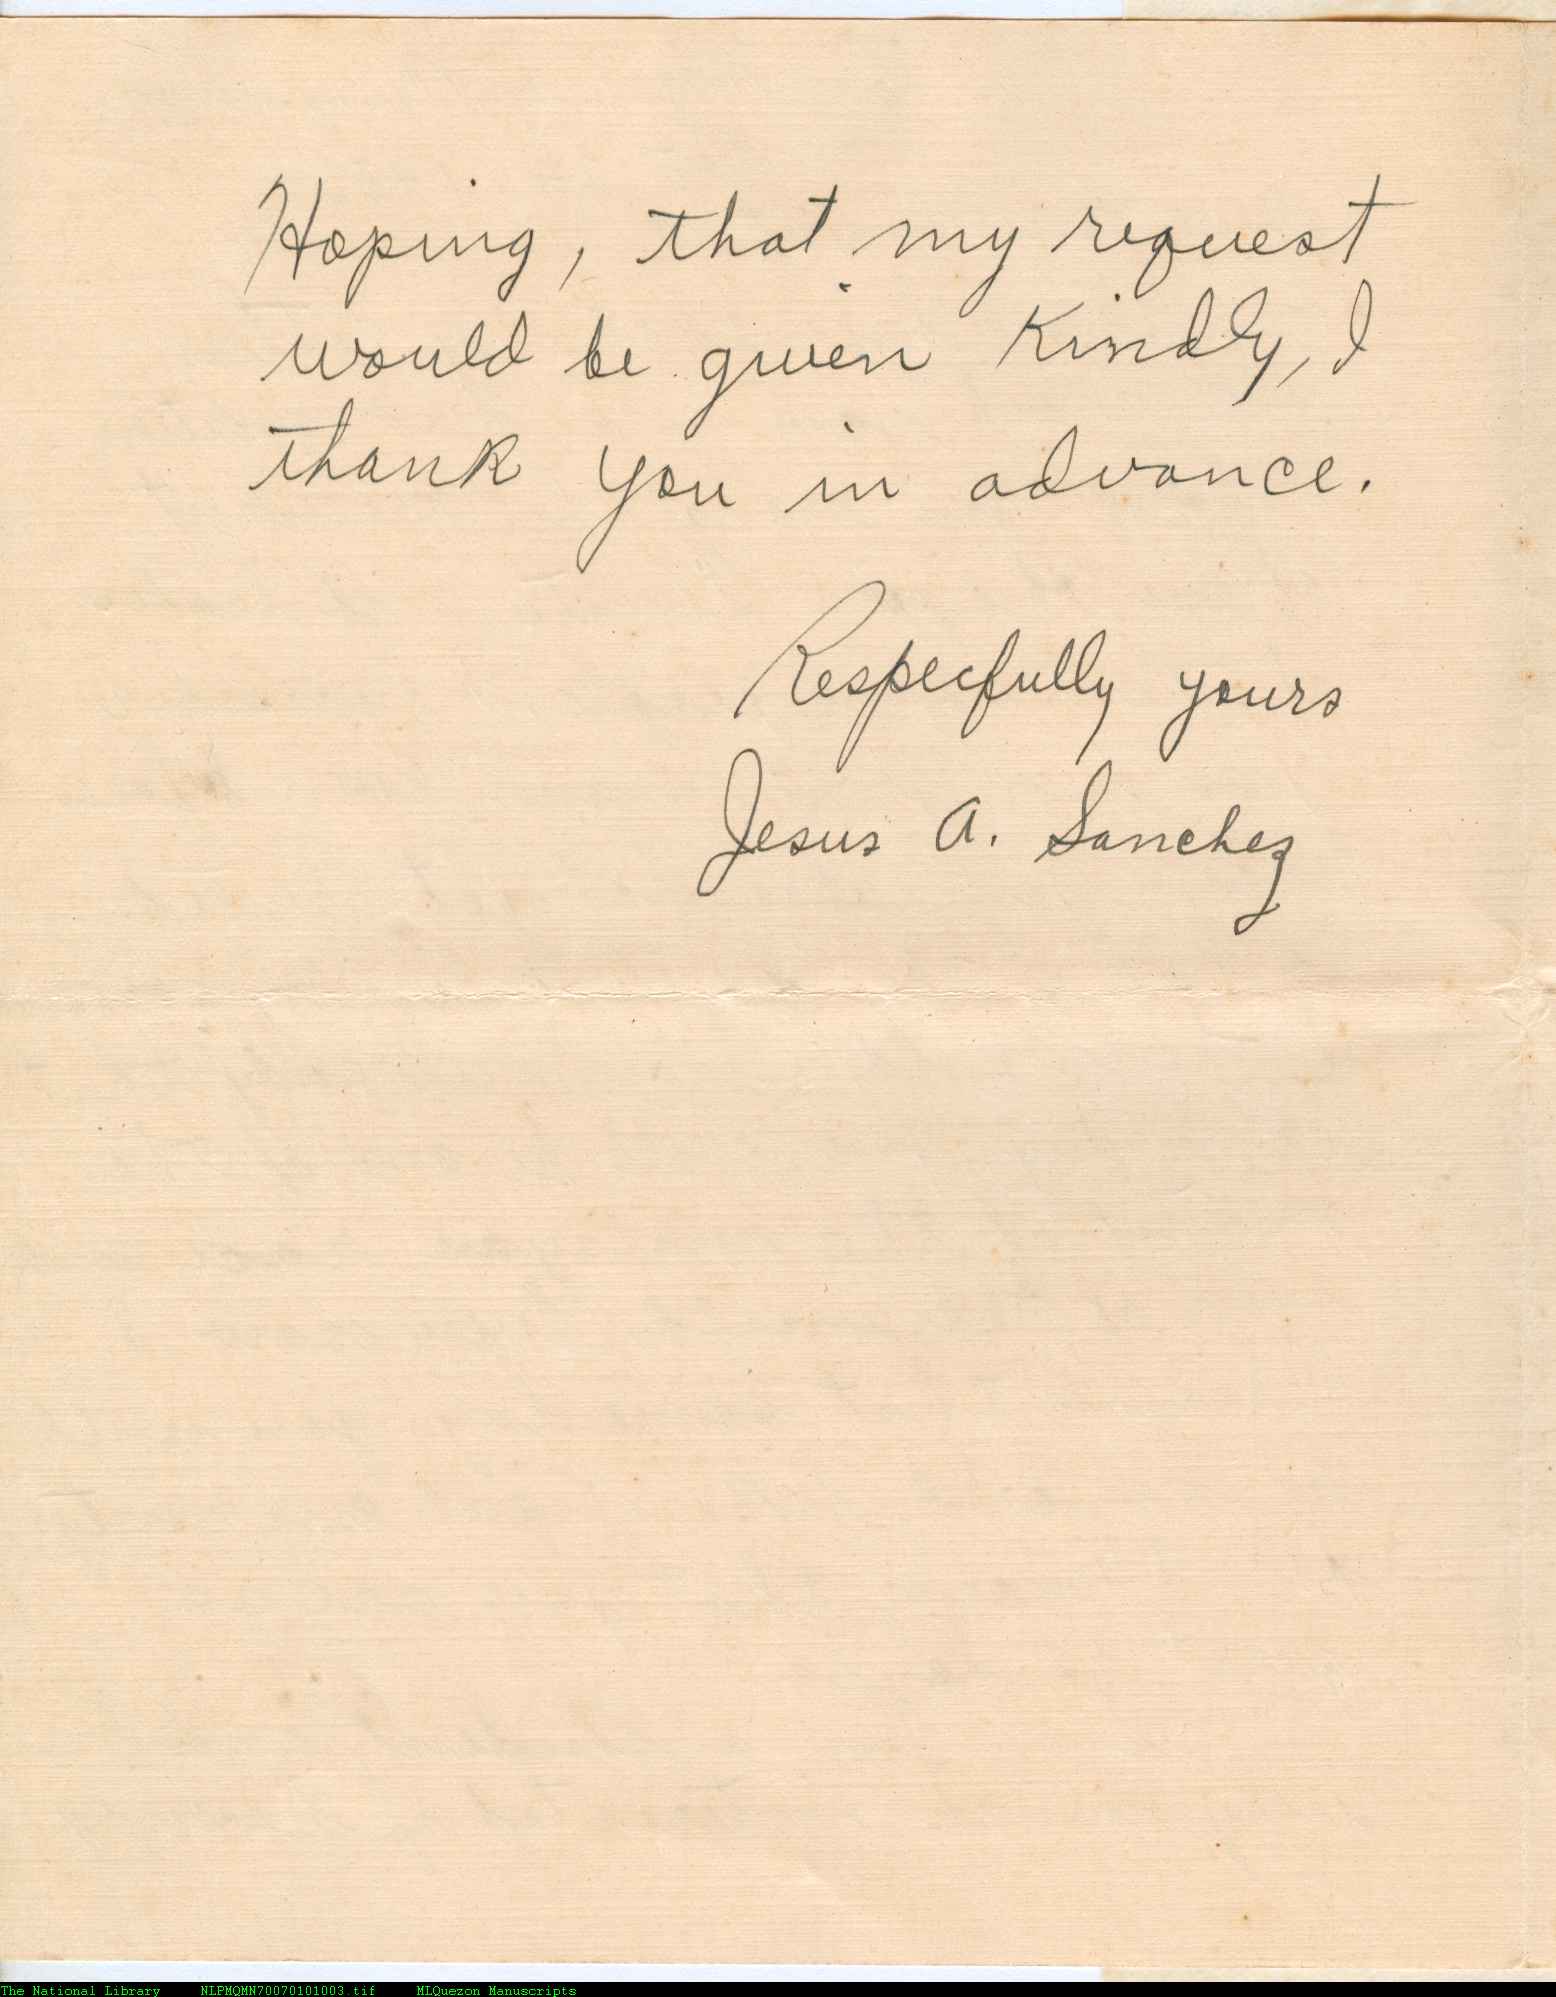 Hoping, that my request
would be given Kindly, I
thank you in advance.
Respecfully yours
Jesus A. Sanchez
The National Library NLPMQMN70070101003.tif MLQuezon Manuscripts